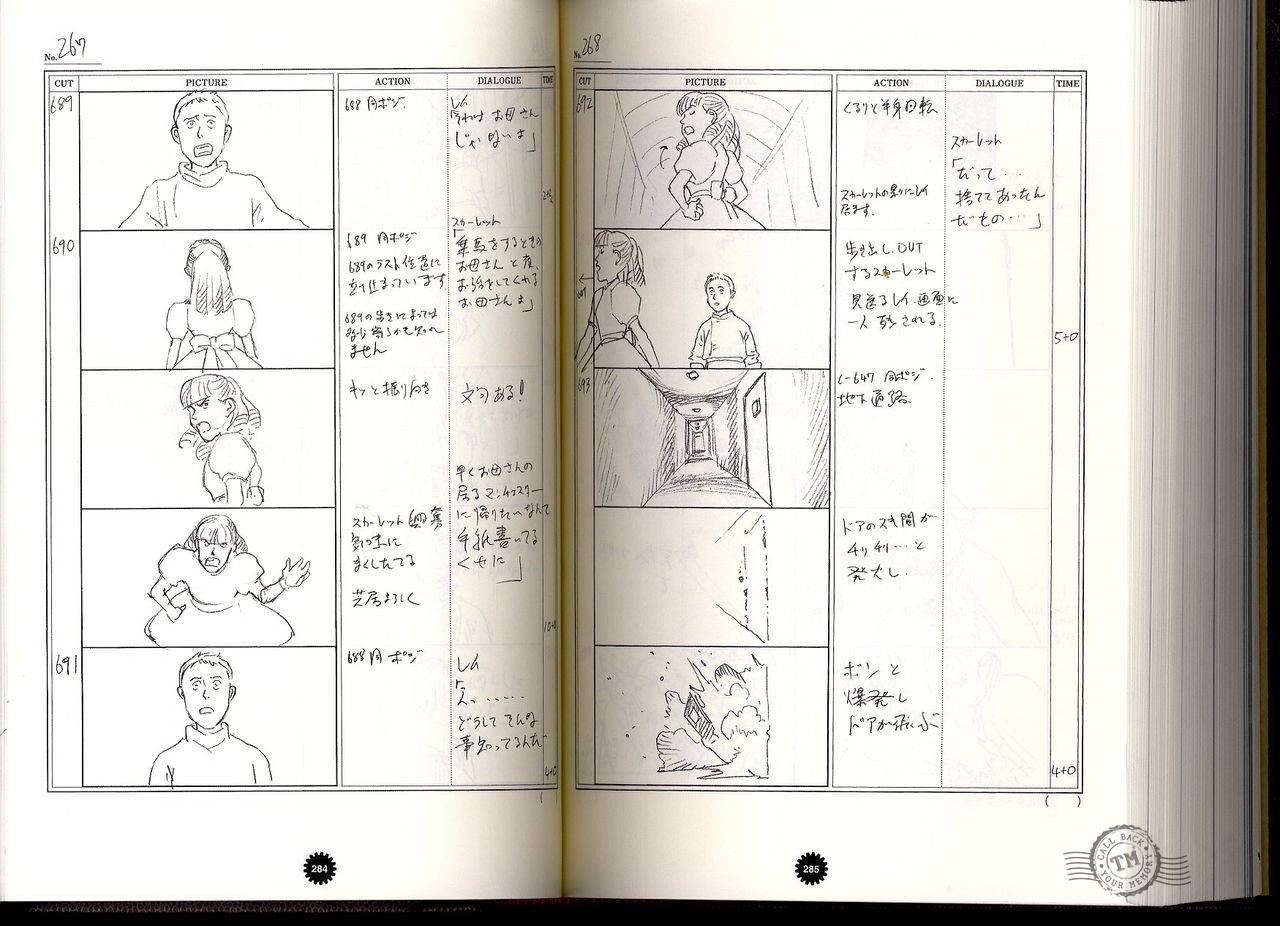 No. 267
CUT PICTURE ACTION DIALOGUE TIME
689
688 同ポジ.
レイ
「それは お母さん
じゃないよ」
690
689 同ポジ
689のラスト位置に
立ち止まっています
689の
ません
スカーレット
「乗馬をするときの
お母さんと
お話をしてくれる
お母さんよ」
キッと振り向き
文句ある!
早くお母さんの
居るマンチェスター
に帰りたいなんて
手紙書いてる
くせに」
スカーレット興奮
気味に
まくしたてる
芝居よろしく
10+0
691
688 同ポジ
レイ
「え‥‥‥
どうして そんな
事知ってるんだ
4+0
( )
284
No. 268
CUT PICTURE ACTION DIALOGUE TIME
692
くるりと半身回転
スカーレットの影にレイ
居ます.
スカーレット
「だって‥
捨ててあったん
だもの‥‥」
OUT
歩き出し OUT
するスカーレット
見送るレイ 画面に
一人 残される.
5+0
693
C-647 同ポジ.
地下通路.
ドアのスキ間が
チリチリ‥‥と
発火し.
ボンと
爆発し
ドアが飛ぶ
4+0
( )
285
CALL BACK
TM
YOUR MEMORY